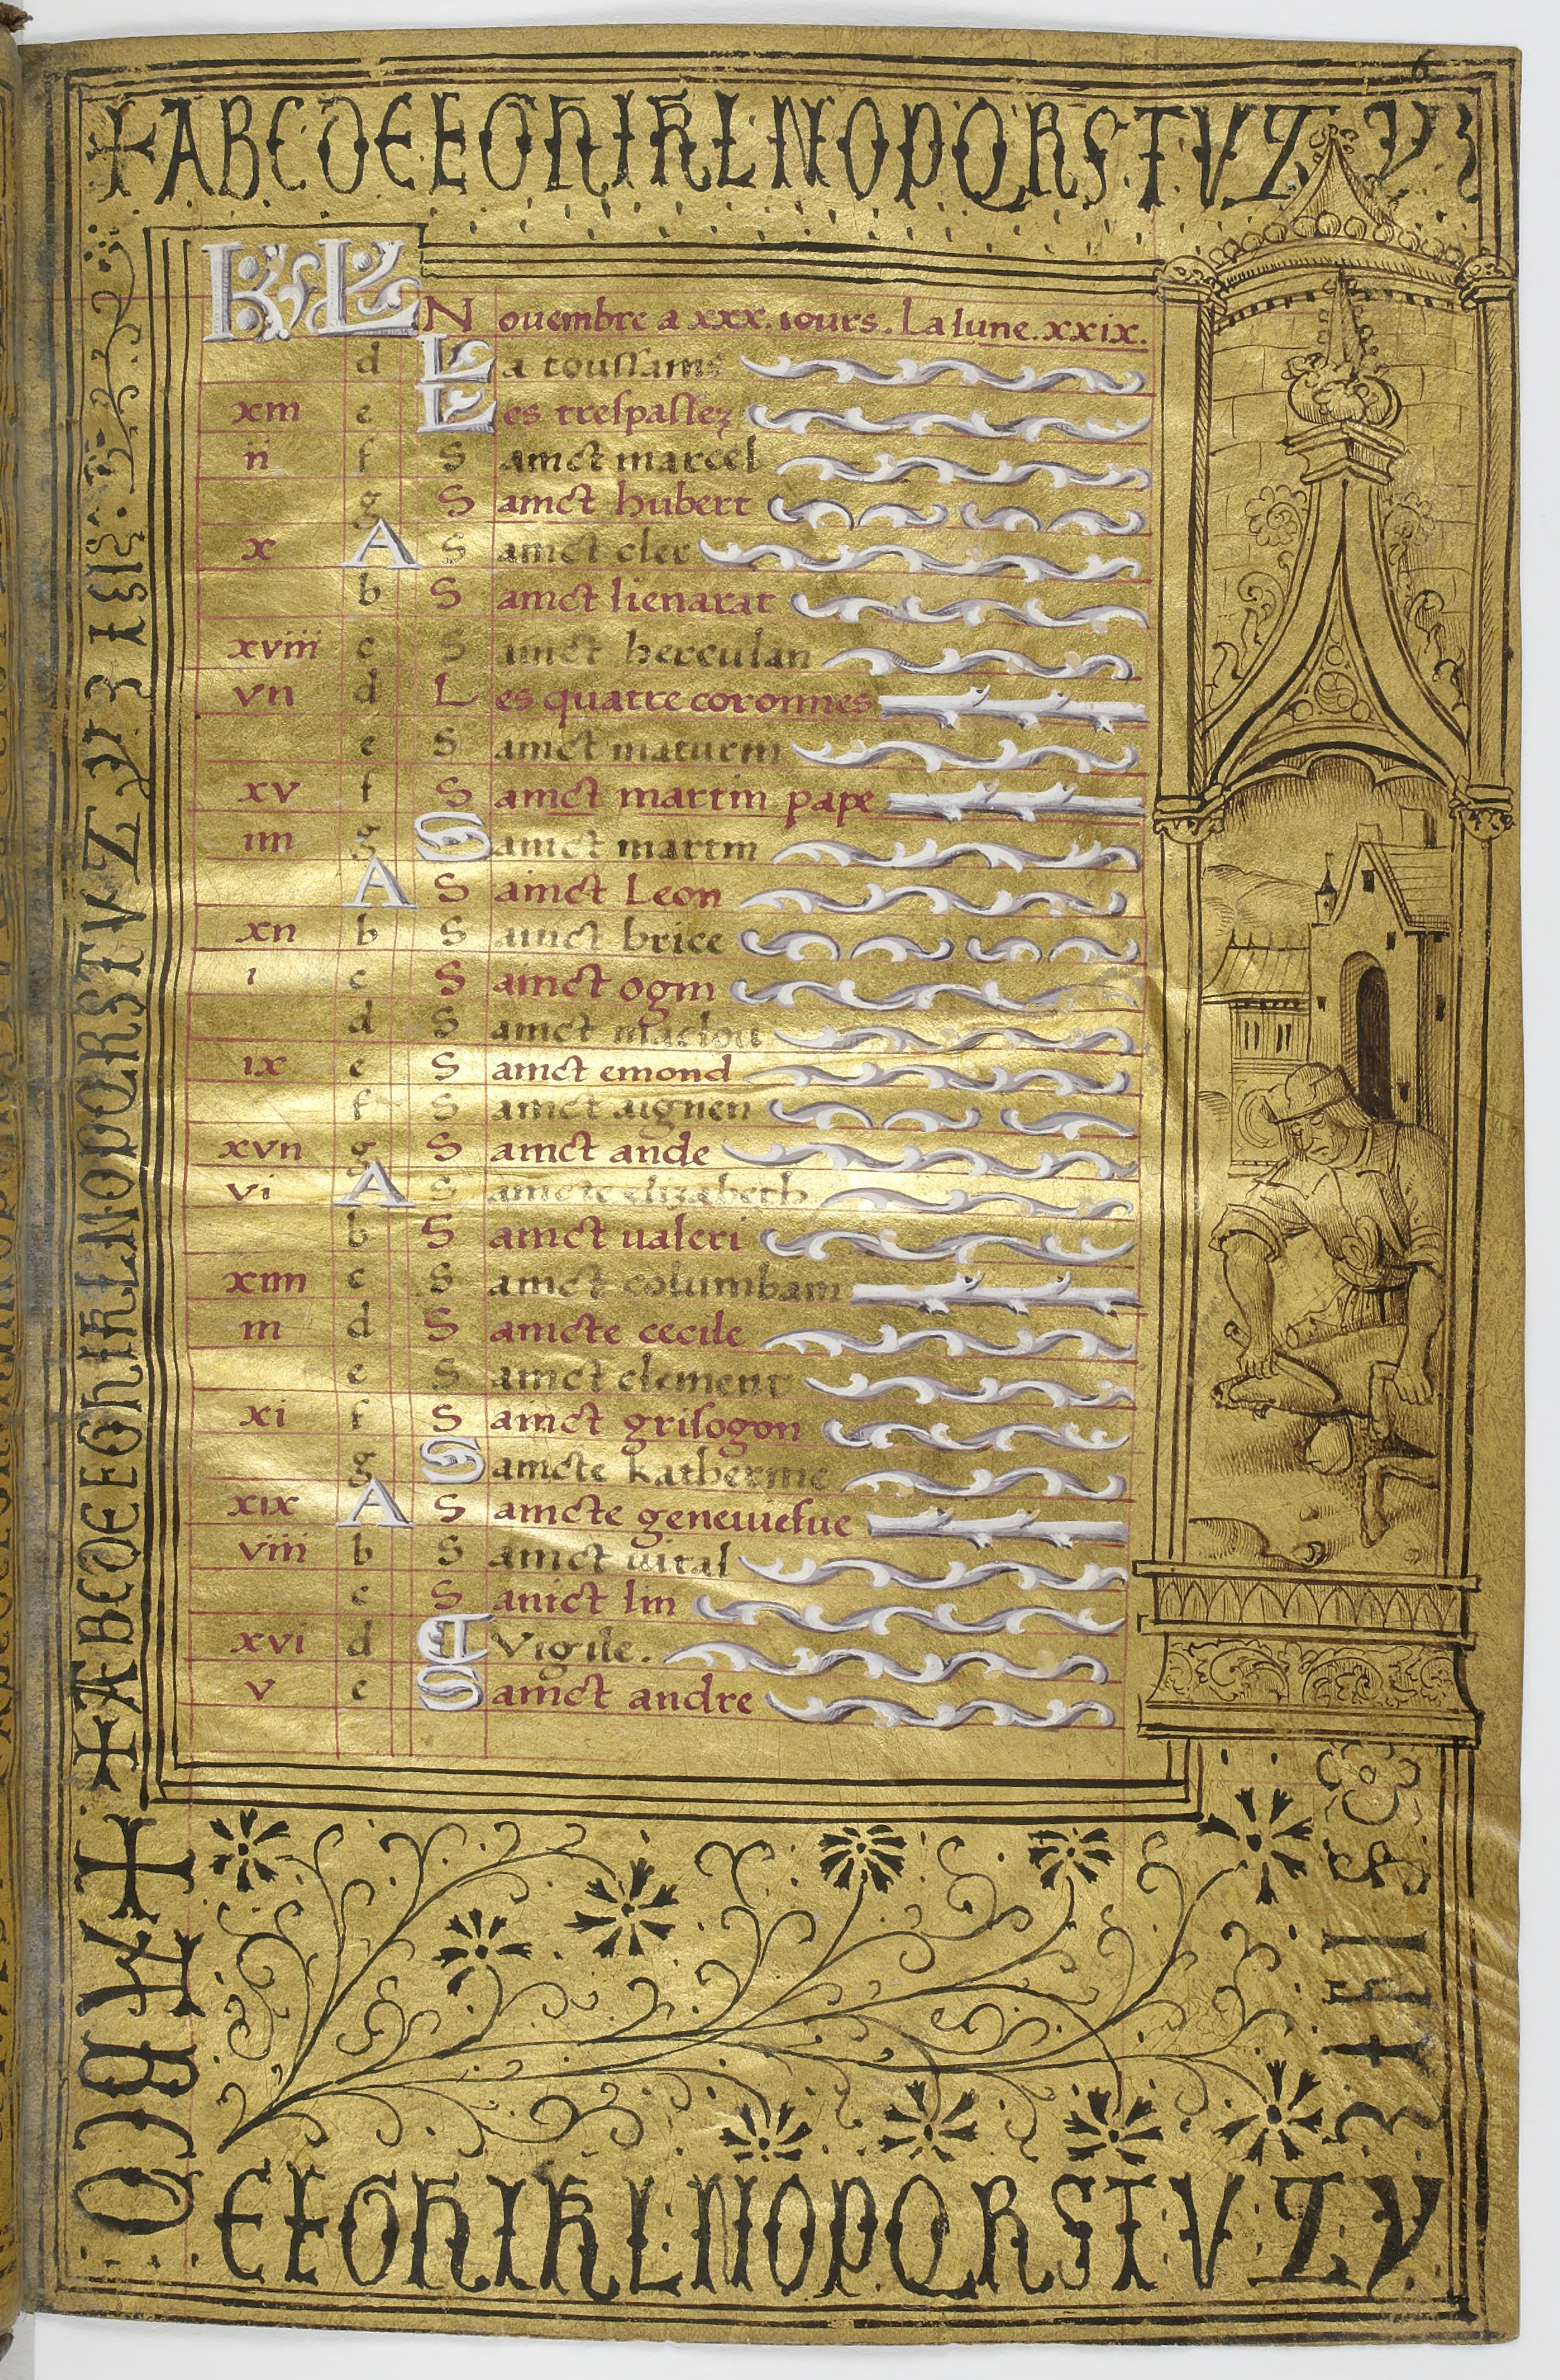 6
+ A B C D E E G H I K L N O P Q R S T V Z y 3
KL Nouembre a xxx. iours. La lune. xxix.
d La toussains
xiii e Les trespassez
ii f Sainct marcel
g Sainct hubert
x A Sainct cler
b Sainct lienarat
xviii c Sainct herculan
vii d Les quatre coronnes
e Sainct maturin
xv f Sainct martin pape
iiii g Sainct martin
A Sainct Leon
xii b Sainct brice
i c Sainct ogin
d Sainct maclou
ix e Sainct emond
f Sainct aignen
xvii g Sainct ande
vi A Saincte elizabeth
b Sainct ualeri
xiiii c Sainct columbam
iii d Saincte cecile
e Sainct clement
xi f Sainct grisogon
g Saincte katherine
xix A Saincte geneuiefue
viii b Sainct uital
c Sainct lin
xvi d Vigile.
v e Sainct andre
+ A B C D E E G H I K L N O P Q R S T V Z y 3
+ A B C D
E E G H I K L N O P Q R S T V Z y